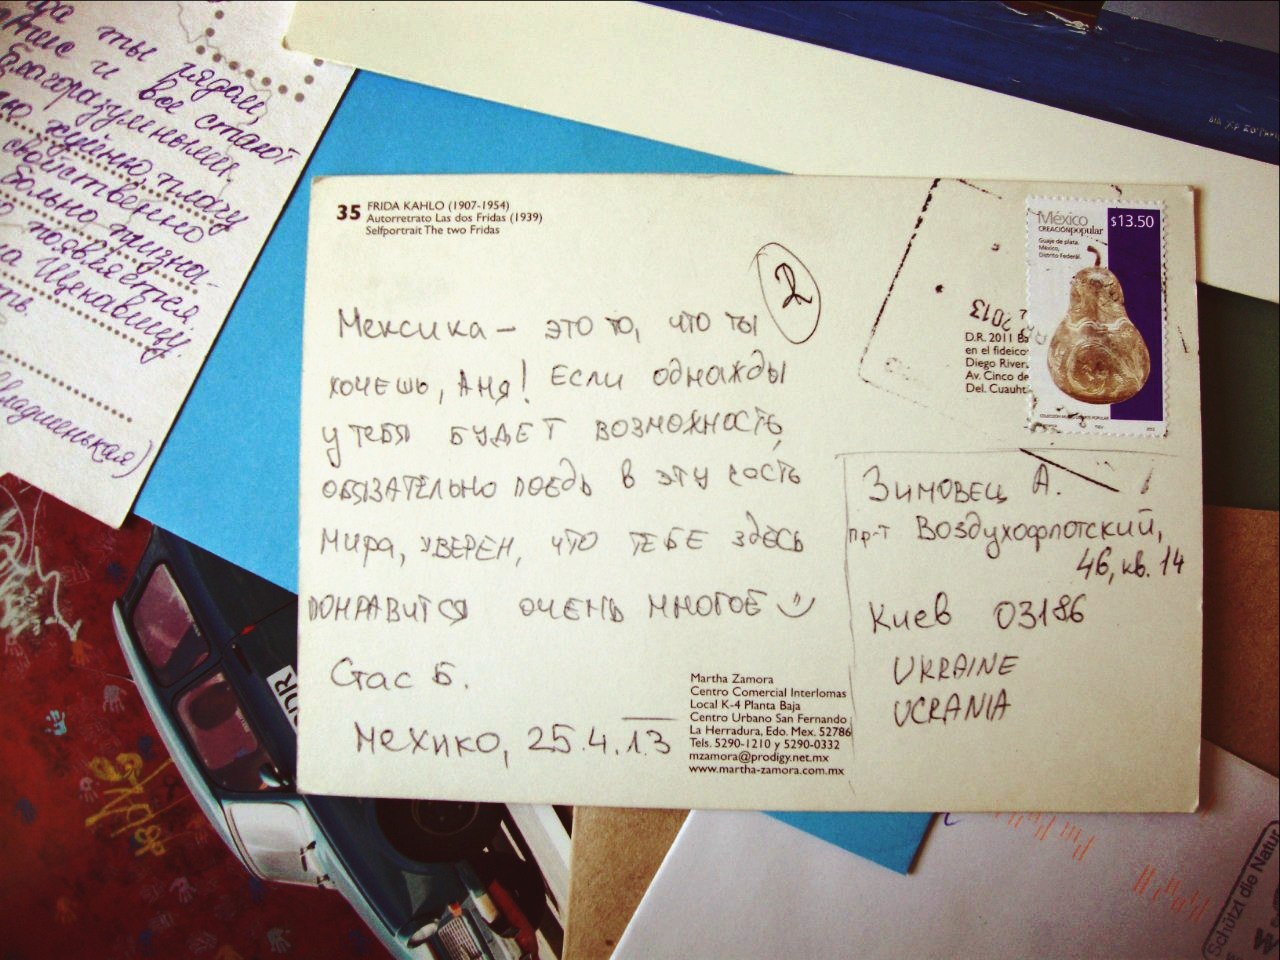 ты рядом,
и все стают
благоразумными
плачу
свойственно
больно призна-
появляется
на Щекавицу
ть.
младшенькая)
35 FRIDA KAHLO (1907-1954)
Autorretrato Las dos Fridas (1939)
Selfportrait The two Fridas
2
Мексика – это то, что ты
хочешь, Аня! Если однажды
у тебя будет возможность,
обязательно поедь в эту часть
мира, уверен, что тебе здесь
понравится очень многое
Стас Б.
Мехико, 25.4.13
Martha Zamora
Centro Comercial Interlomas
Local K-4 Planta Baja
Centro Urbano San Fernando
La Herradura, Edo. Mex. 52786
Tels. 5290-1210 y 5290-0332
mzamora@prodigy.net.mx
www.martha-zamora.com.mx
México $13.50
CREACIÓNpopular
Guaje de plata.
México,
Distrito Federal.
2013
D.R. 2011 Ba
en el fideico
Diego River
Av. Cinco de
Del. Cuauht
Зимовец А.
пр-т Воздухофлотский,
46, кв. 14
Киев 03186
UKRAINE
UCRANIA
Schützt die Natur